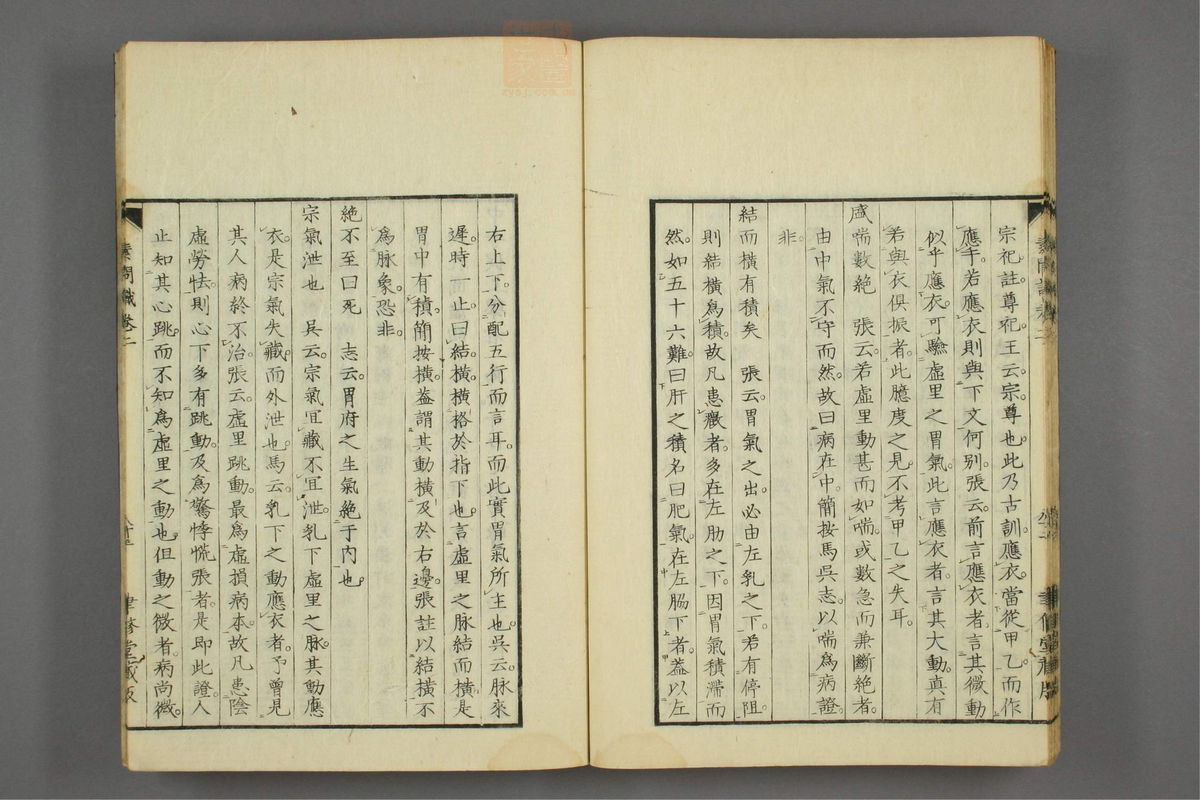 宗祀註尊祀王云宗尊也此乃古訓應衣當從甲乙而作
應手若應衣則與下文何別張云前言應衣者言其微動
似乎應衣可驗虛里之胃氣此言應衣者言其大動真有
若與衣俱振者此臆度之見不考甲乙之失耳
盛喘數絶　張云若虛里動甚而如喘或數急而兼斷絶者
由中氣不守而然故曰病在中簡按馬吳志以喘爲病證
非
結而橫有積矣　張云胃氣之出必由左乳之下若有停阻
則結橫爲積故凡患癥者多在左肋之下因胃氣積滯而
然如五十六難曰肝之積名曰肥氣在左脇下者蓋以左
右上下分配五行而言耳而此實胃氣所主也吳云脉來
遲時一止曰結橫橫挌於指下也言虛里之脉結而橫是
胃中有積簡按橫蓋謂其動橫及於右邊張註以結橫不
爲脉象恐非
絶不至曰死　志云胃府之生氣絶于内也
宗氣泄也　吳云宗氣宜藏不宜泄乳下虛里之脉其動應
衣是宗氣失藏而外泄也馬云乳下之動應衣者予曾見
其人病終不治張云虛里跳動最爲虛損病本故凡患陰
虛勞怯則心下多有跳動及爲驚悸慌張者是即此證人
止知其心跳而不知爲虛里之動也但動之微者病尚微
素問識卷二
聿修堂藏版